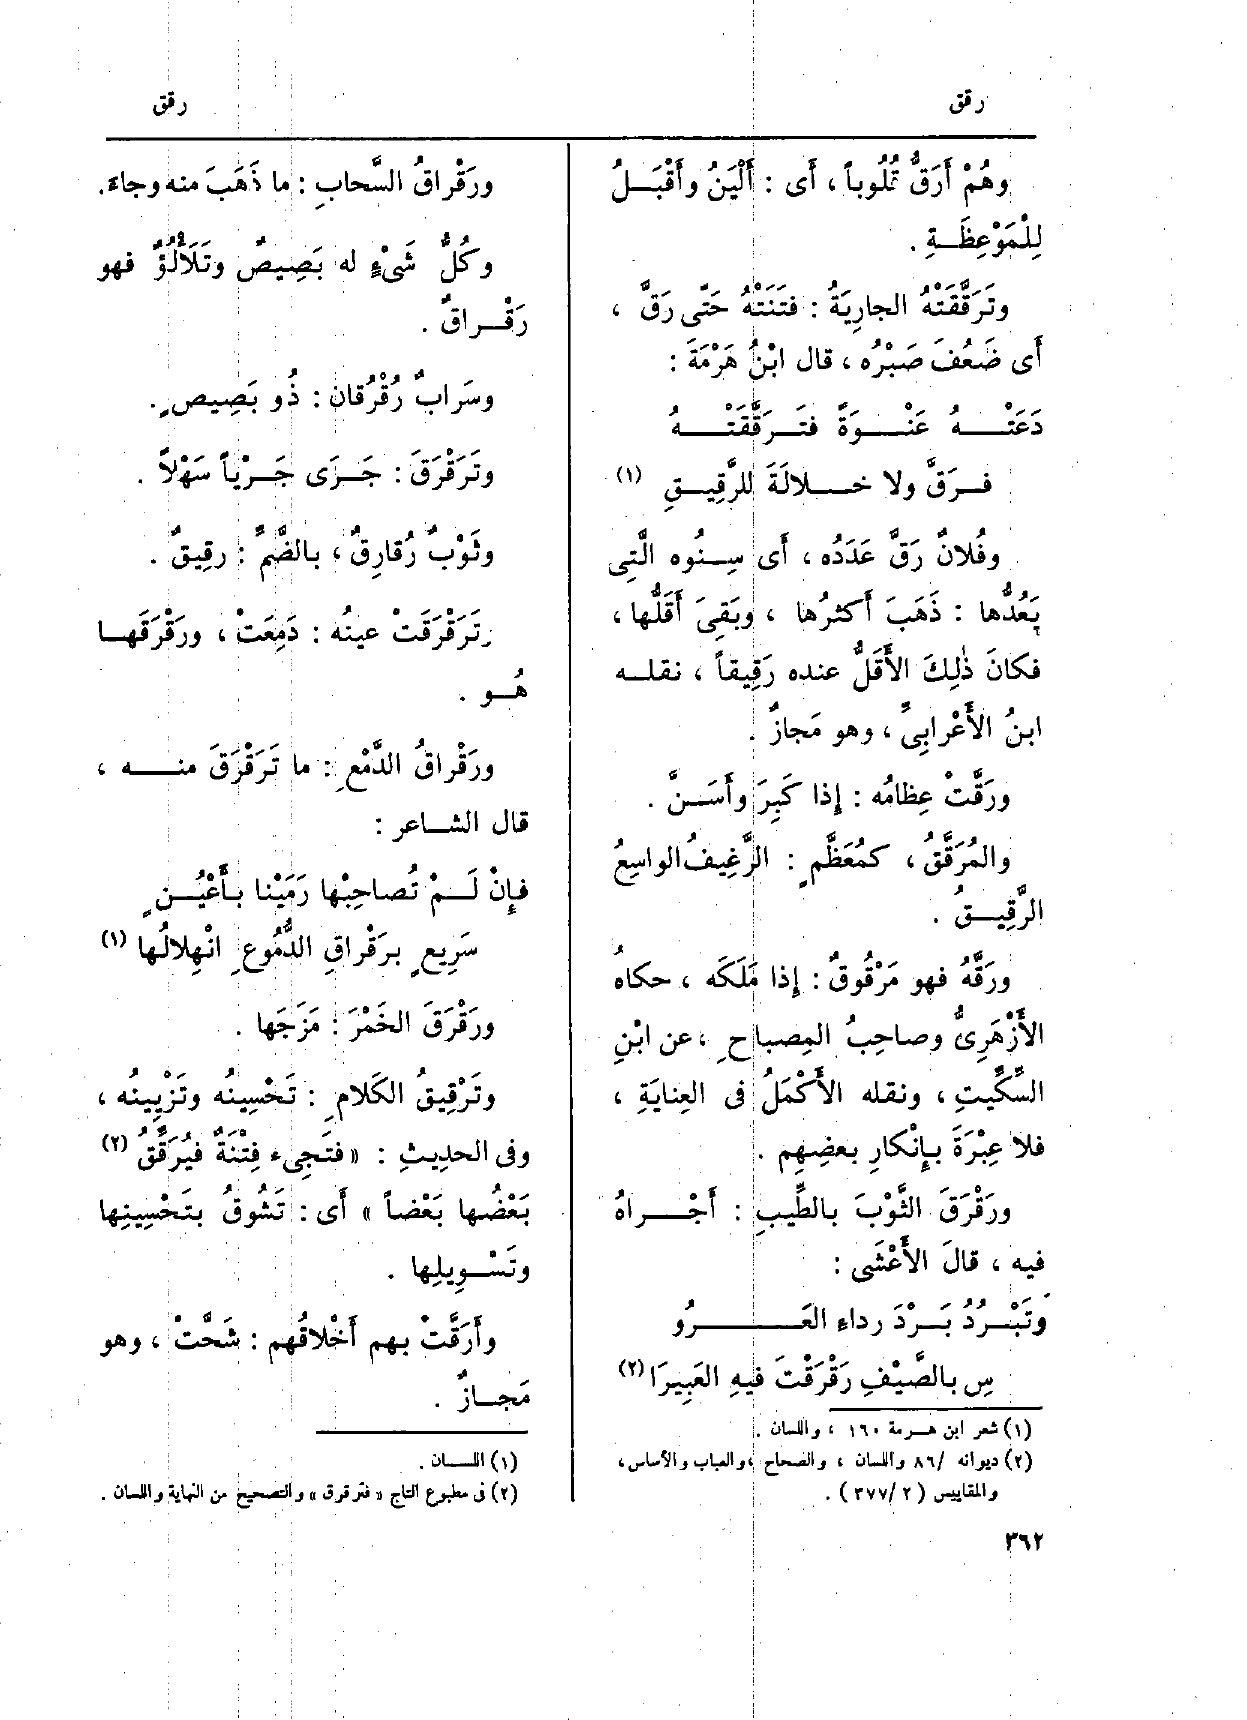 رقق
رقق
وهُمْ أَرَقُّ قُلُوباً، أَى : أَلْيَنُ وأَقْبَـلُ
لِلْمَوْعِظَـةِ .
وتَرَقَّقَتْهُ الجارِيَةُ : فتَنَتْهُ حَتَّى رَقَّ ،
أَى ضَعُفَ صَبْرُه ، قال ابْنُ هَرْمَةَ :
دَعَتْـــهُ عَنْــوَةً فتَــرَقَّقَتْـــهُ
فــرَقَّ ولا خـــلالَةَ للرَّقِيــقِ (١)
وفُلانٌ رَقَّ عَدَدُه ، أَى سِــنُوه الَّتِى
يَعُدُّها : ذَهَبَ أَكثرُها ، وبَقِىَ أَقَلُّها ،
فكانَ ذٰلِكَ الأَقَلُّ عنده رَقِيقاً ، نقلـه
ابنُ الأَعْرابِىِّ ، وهو مَجازٌ .
ورَقَّتْ عِظامُه : إِذا كَبِرَ وأَسَــنَّ .
والمُرَقَّقُ ، كمُعَظَّمٍ : الرَّغِيفُ الواسِعُ
الرَّقِيــقُ .
ورَقَّهُ فهو مَرْقُوقٌ : إِذا مَلَكَه ، حكاهُ
الأَزْهَرِىُّ وصاحِبُ المِصباحِ ، عن ابْنِ
السِّكِّيتِ ، ونقله الأَكْمَلُ فى العِنايَةِ ،
فلا عِبْرَةَ بإِنْكارِ بعضِهِم .
ورَقْرَقَ الثَّوْبَ بالطِّيبِ : أَجْــراهُ
فيه ، قالَ الأَعْشَى :
وتَبْــرُدُ بَــرْدَ رِداءِ العَـــــــرُو
سِ بالصَّيْفِ رَقْرَقْتَ فيهِ العَبِيرَا (٢)
(١) شعر ابن هـرمة ١٦٠ ، واللسان .
(٢) ديوانه /٨٦ واللسان ، والصحاح ،والعباب والأساس،
والمقاييس (٢ /٣٧٧) .
٣٦٢
ورَقْراقُ السَّحابِ : ما ذَهَبَ منه وجاءَ.
وكُلُّ شَىْءٍ له بَصِيصٌ وتَلَأْلُؤٌ فهو
رَقْــراقٌ .
وسَرابٌ رُقْرُقان : ذُو بَصِيصٍ.
وتَرَقْرَقَ : جَــرَى جَــرْياً سَهْلاً .
وثَوْبٌ رُقارِقٌ ، بالضَّمِّ : رقِيقٌ .
وتَرَقْرَقَتْ عينُه : دَمِعَتْ ، ورَقْرَقَهـا
هُــو .
ورَقْراقُ الدَّمْعِ : ما تَرَقْرَقَ منـــه ،
قال الشـاعر :
فإِنْ لَــمْ تُصاحِبْها رَمَيْنا بـأَعْيُــنٍ
سَرِيعٍ بـرَقْراقِ الدُّمُوعِ انْهِلالُها (١)
ورَقْرَقَ الخَمْرَ : مَزَجَها .
وتَرْقِيقُ الكَلامِ : تَحْسِينُه وتَزْيِينُه ،
وفى الحدِيثِ : « فتَجِىء فِتْنَةٌ فيُرَقِّقُ (٢)
بَعْضُها بَعْضاً » أَى : تَشُوقُ بتَحْسِينِها
وتَسْــوِيلِها .
وأَرَقَّتْ بهم أَخْلاقُهم : شَحَّتْ ، وهو
مَجــازٌ .
(١) اللســان .
(٢) فى مطبوع التاج « فترقرق » والتصحيح من النهاية واللسان .